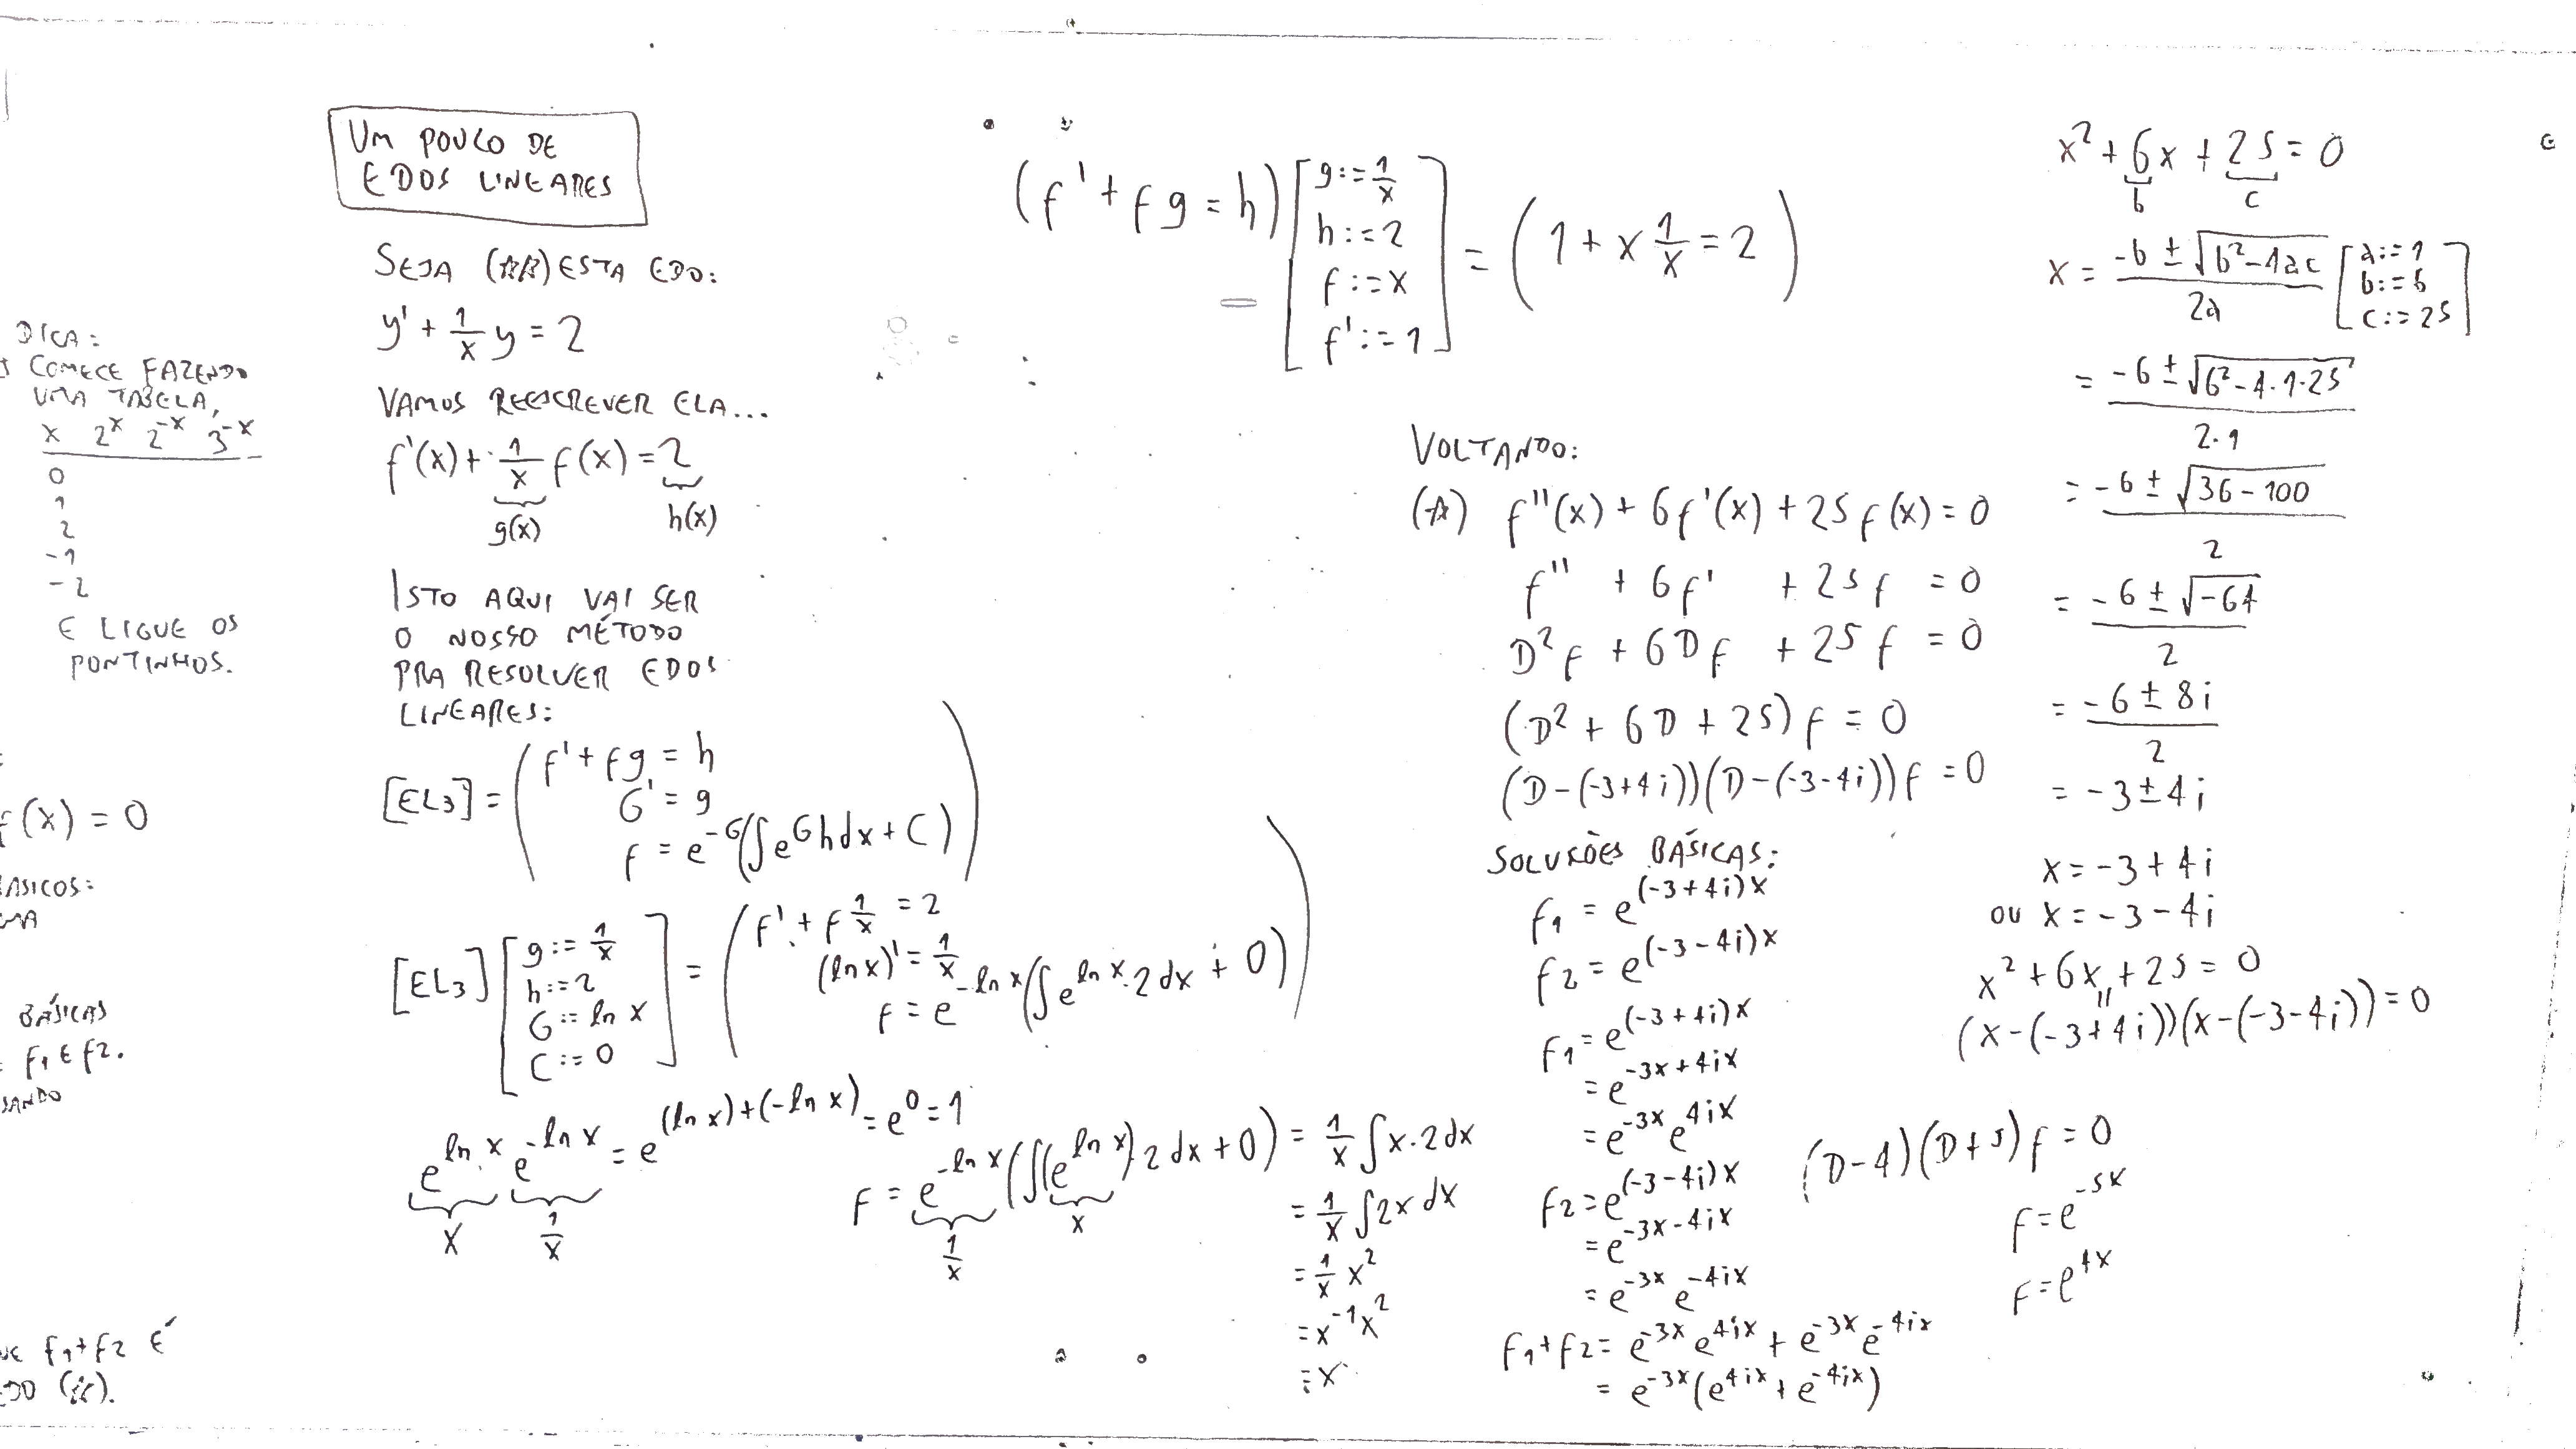 DICA:
COMECE FAZENDO
UMA TABELA,
x 2^x 2^-x 3^-x
0
1
2
-1
-2
E LIGUE OS
PONTINHOS.
f(x) = 0
BÁSICAS
f1 E f2.
f1+f2 É
UM POUCO DE
EDOS LINEARES
SEJA (**) ESTA EDO:
y' + 1/x y = 2
VAMOS REESCREVER ELA...
f'(x) + 1/x f(x) = 2
g(x) h(x)
ISTO AQUI VAI SER
O NOSSO MÉTODO
PRA RESOLVER EDOS
LINEARES:
[EL3] = ( f' + fg = h
G' = g
f = e^-G (∫e^G h dx + C) )
[EL3] [ g := 1/x
h := 2
G := ln x
C := 0 ]
= ( f' + f 1/x = 2
(ln x)' = 1/x
f = e^-ln x (∫e^ln x · 2 dx + 0) )
e^ln x e^-ln x = e^((ln x)+(-ln x)) = e^0 = 1
x 1/x
f = e^-ln x (∫(e^ln x) 2 dx + 0) = 1/x ∫x·2dx
1/x x
= 1/x ∫2x dx
= 1/x x^2
= x^-1 x^2
= x
(f' + fg = h) [ g := 1/x
h := 2
f := x
f' := 1 ]
= (1 + x 1/x = 2)
VOLTANDO:
(*) f''(x) + 6f'(x) + 25f(x) = 0
f'' + 6f' + 25f = 0
D^2 f + 6Df + 25f = 0
(D^2 + 6D + 25)f = 0
(D-(-3+4i))(D-(-3-4i))f = 0
SOLUÇÕES BÁSICAS:
f1 = e^(-3+4i)x
f2 = e^(-3-4i)x
f1 = e^(-3+4i)x
= e^-3x+4ix
= e^-3x e^4ix
f2 = e^(-3-4i)x
= e^-3x-4ix
= e^-3x e^-4ix
f1+f2 = e^-3x e^4ix + e^-3x e^-4ix
= e^-3x (e^4ix + e^-4ix)
x^2 + 6x + 25 = 0
b c
x = (-b ± √(b^2-4ac))/2a [ a := 1
b := 6
c := 25 ]
= (-6 ± √(6^2-4·1·25))/2·1
= (-6 ± √(36-100))/2
= (-6 ± √-64)/2
= (-6 ± 8i)/2
= -3 ± 4i
x = -3 + 4i
OU x = -3 - 4i
x^2 + 6x + 25 = 0
"
(x-(-3+4i))(x-(-3-4i)) = 0
(D-4)(D+5)f = 0
f = e^-5x
f = e^4x